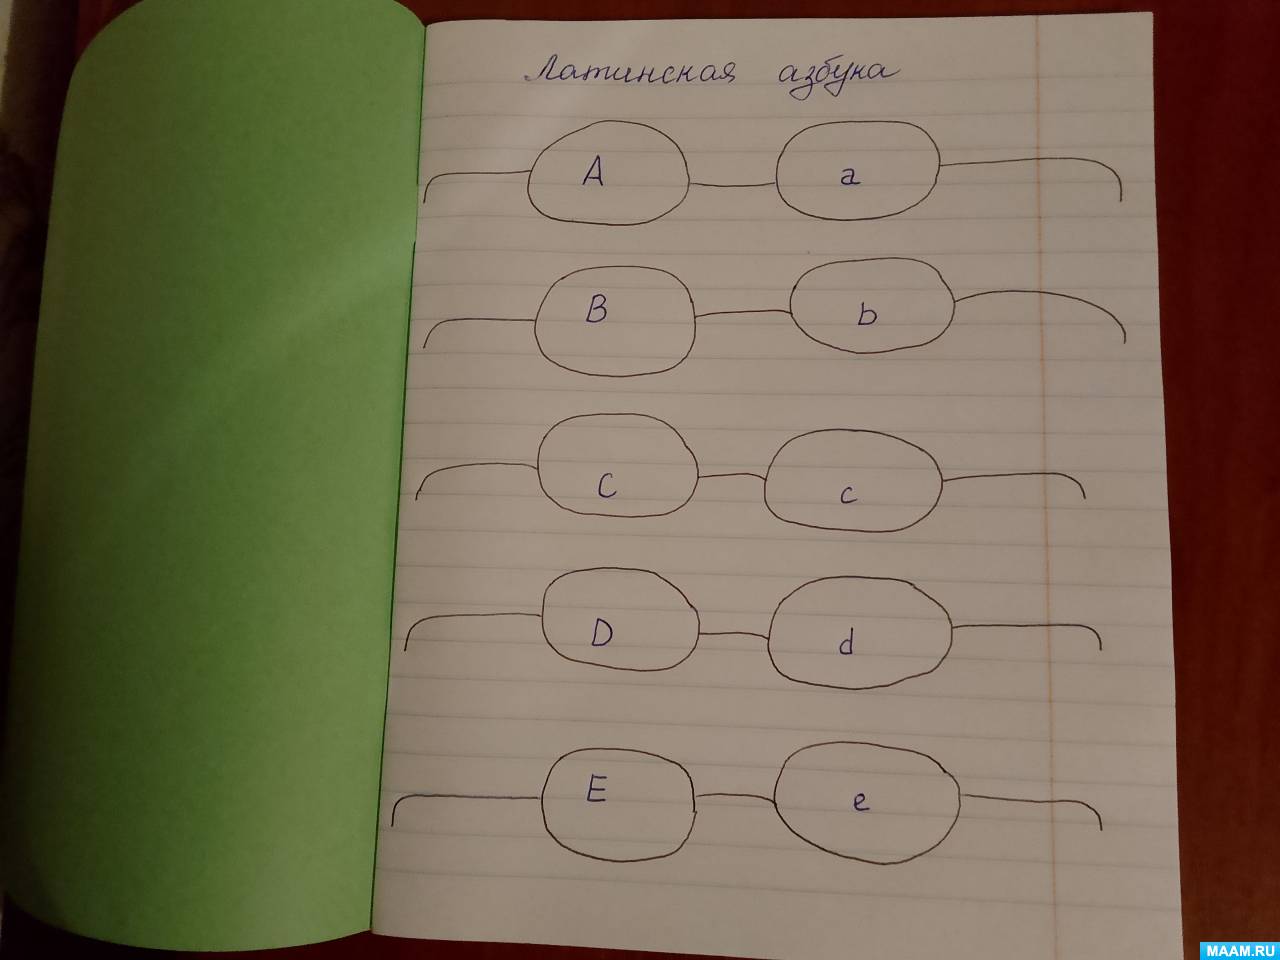 Латинская азбука
A a
B b
C c
D d
E e
MAAM.RU